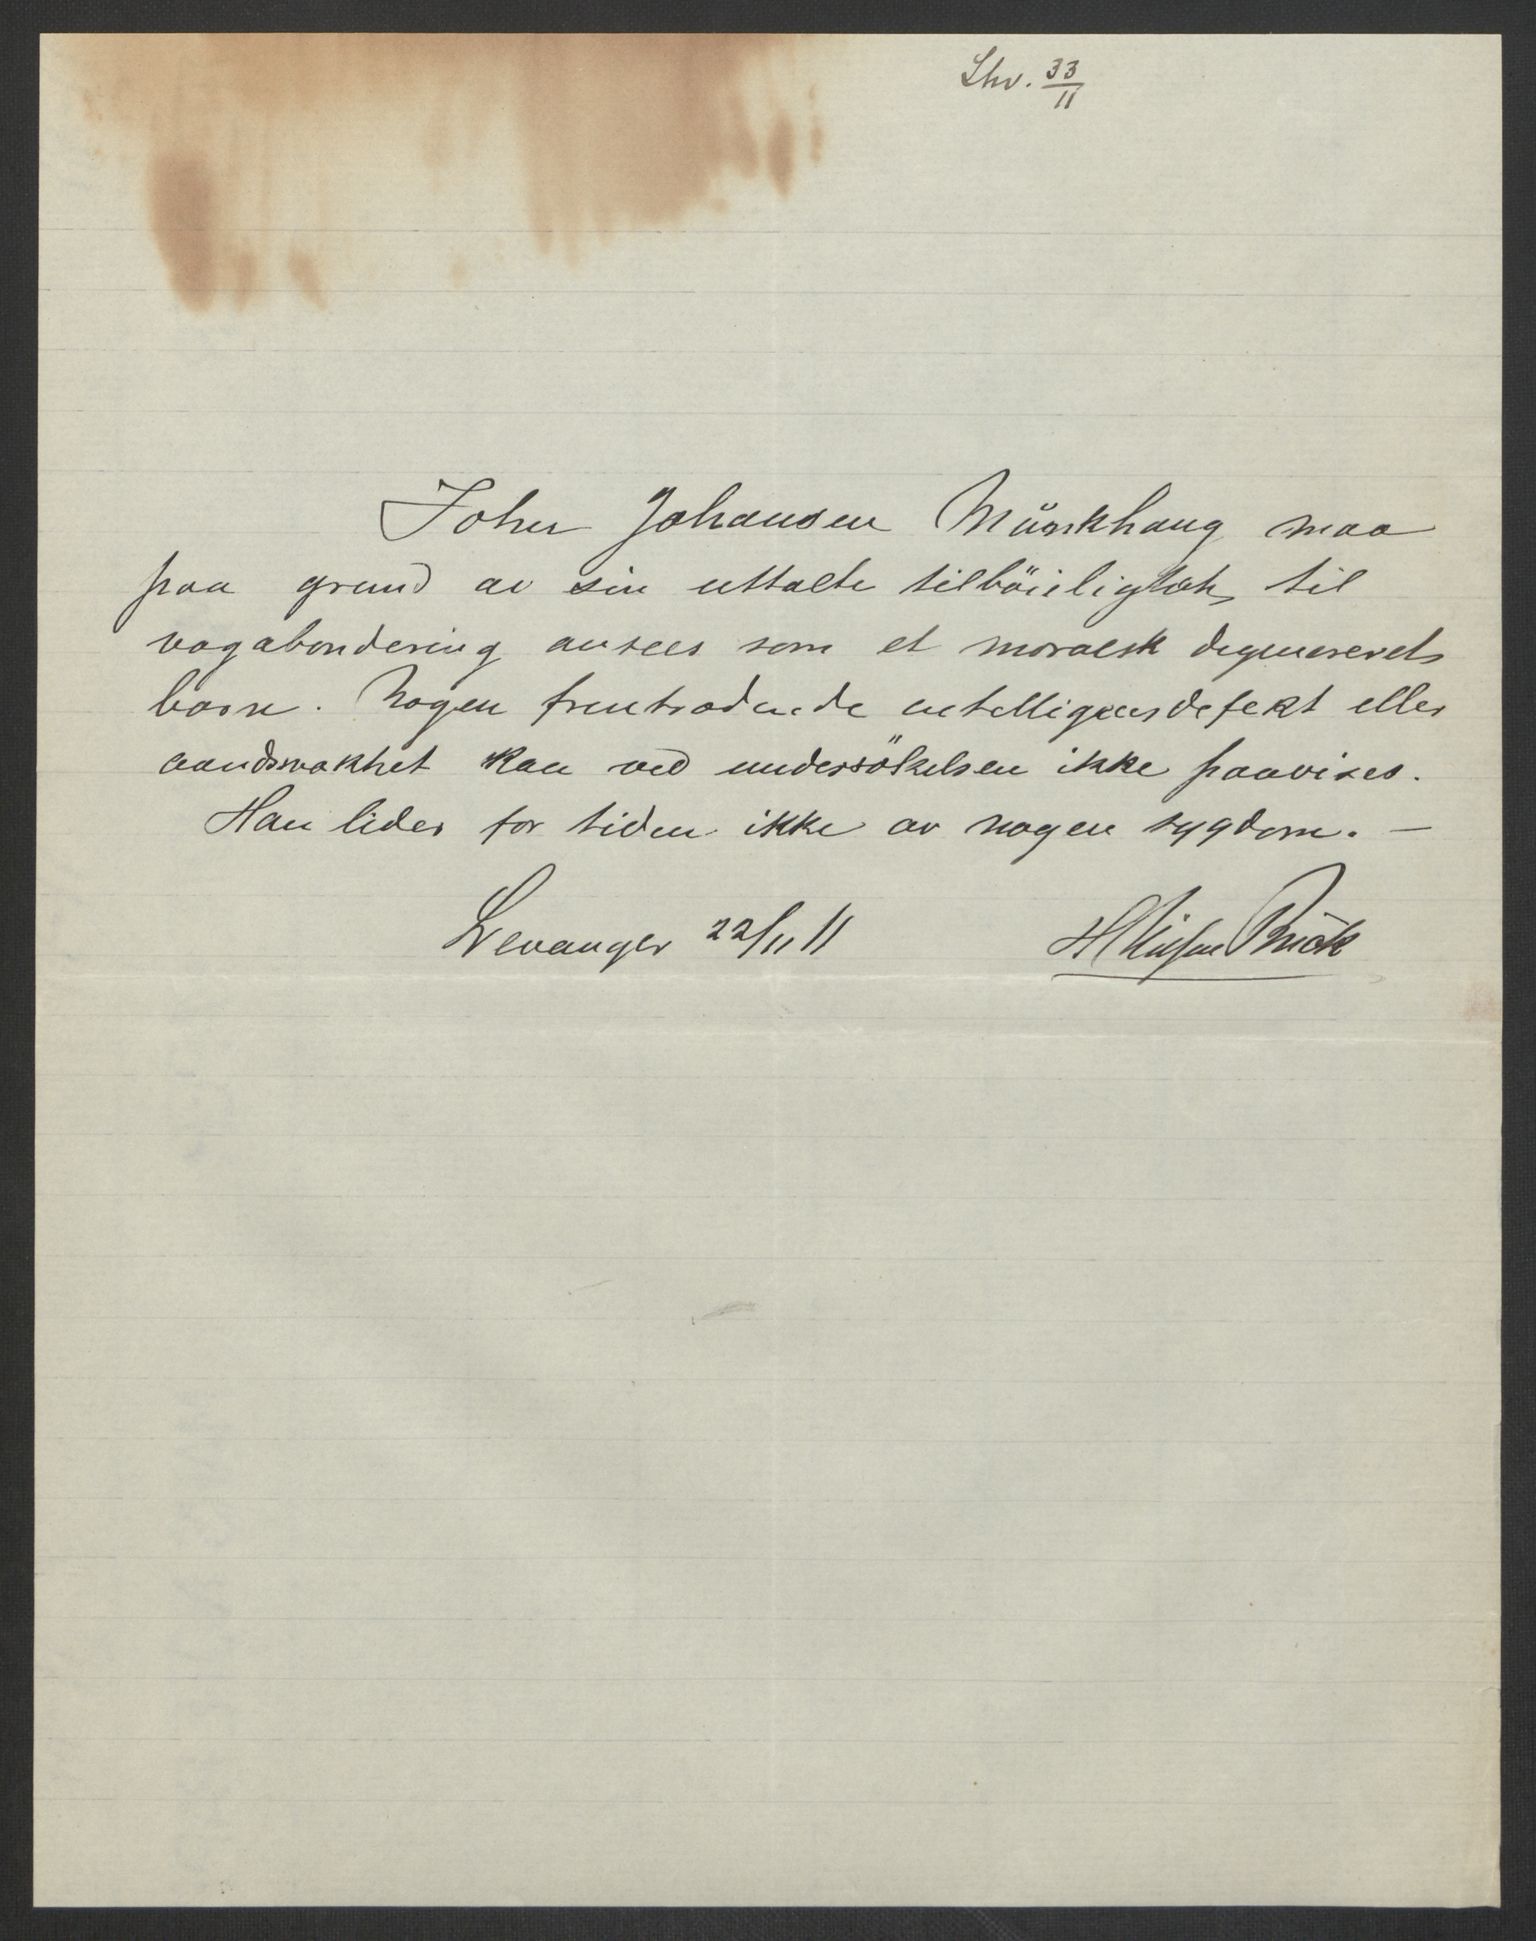 Lhv. 33/11
John Johansen Münkhaug maa
paa grund av sin uttalte tilböielighet til
vagabondering ansees som et moralsk degenereret
barn. Nogen fremtrædende intelligensdefekt eller
aandssvakhet kan ved undersökelsen ikke paavises.
Han lider for tiden ikke av nogen sygdom. —
Levanger 22/11 11